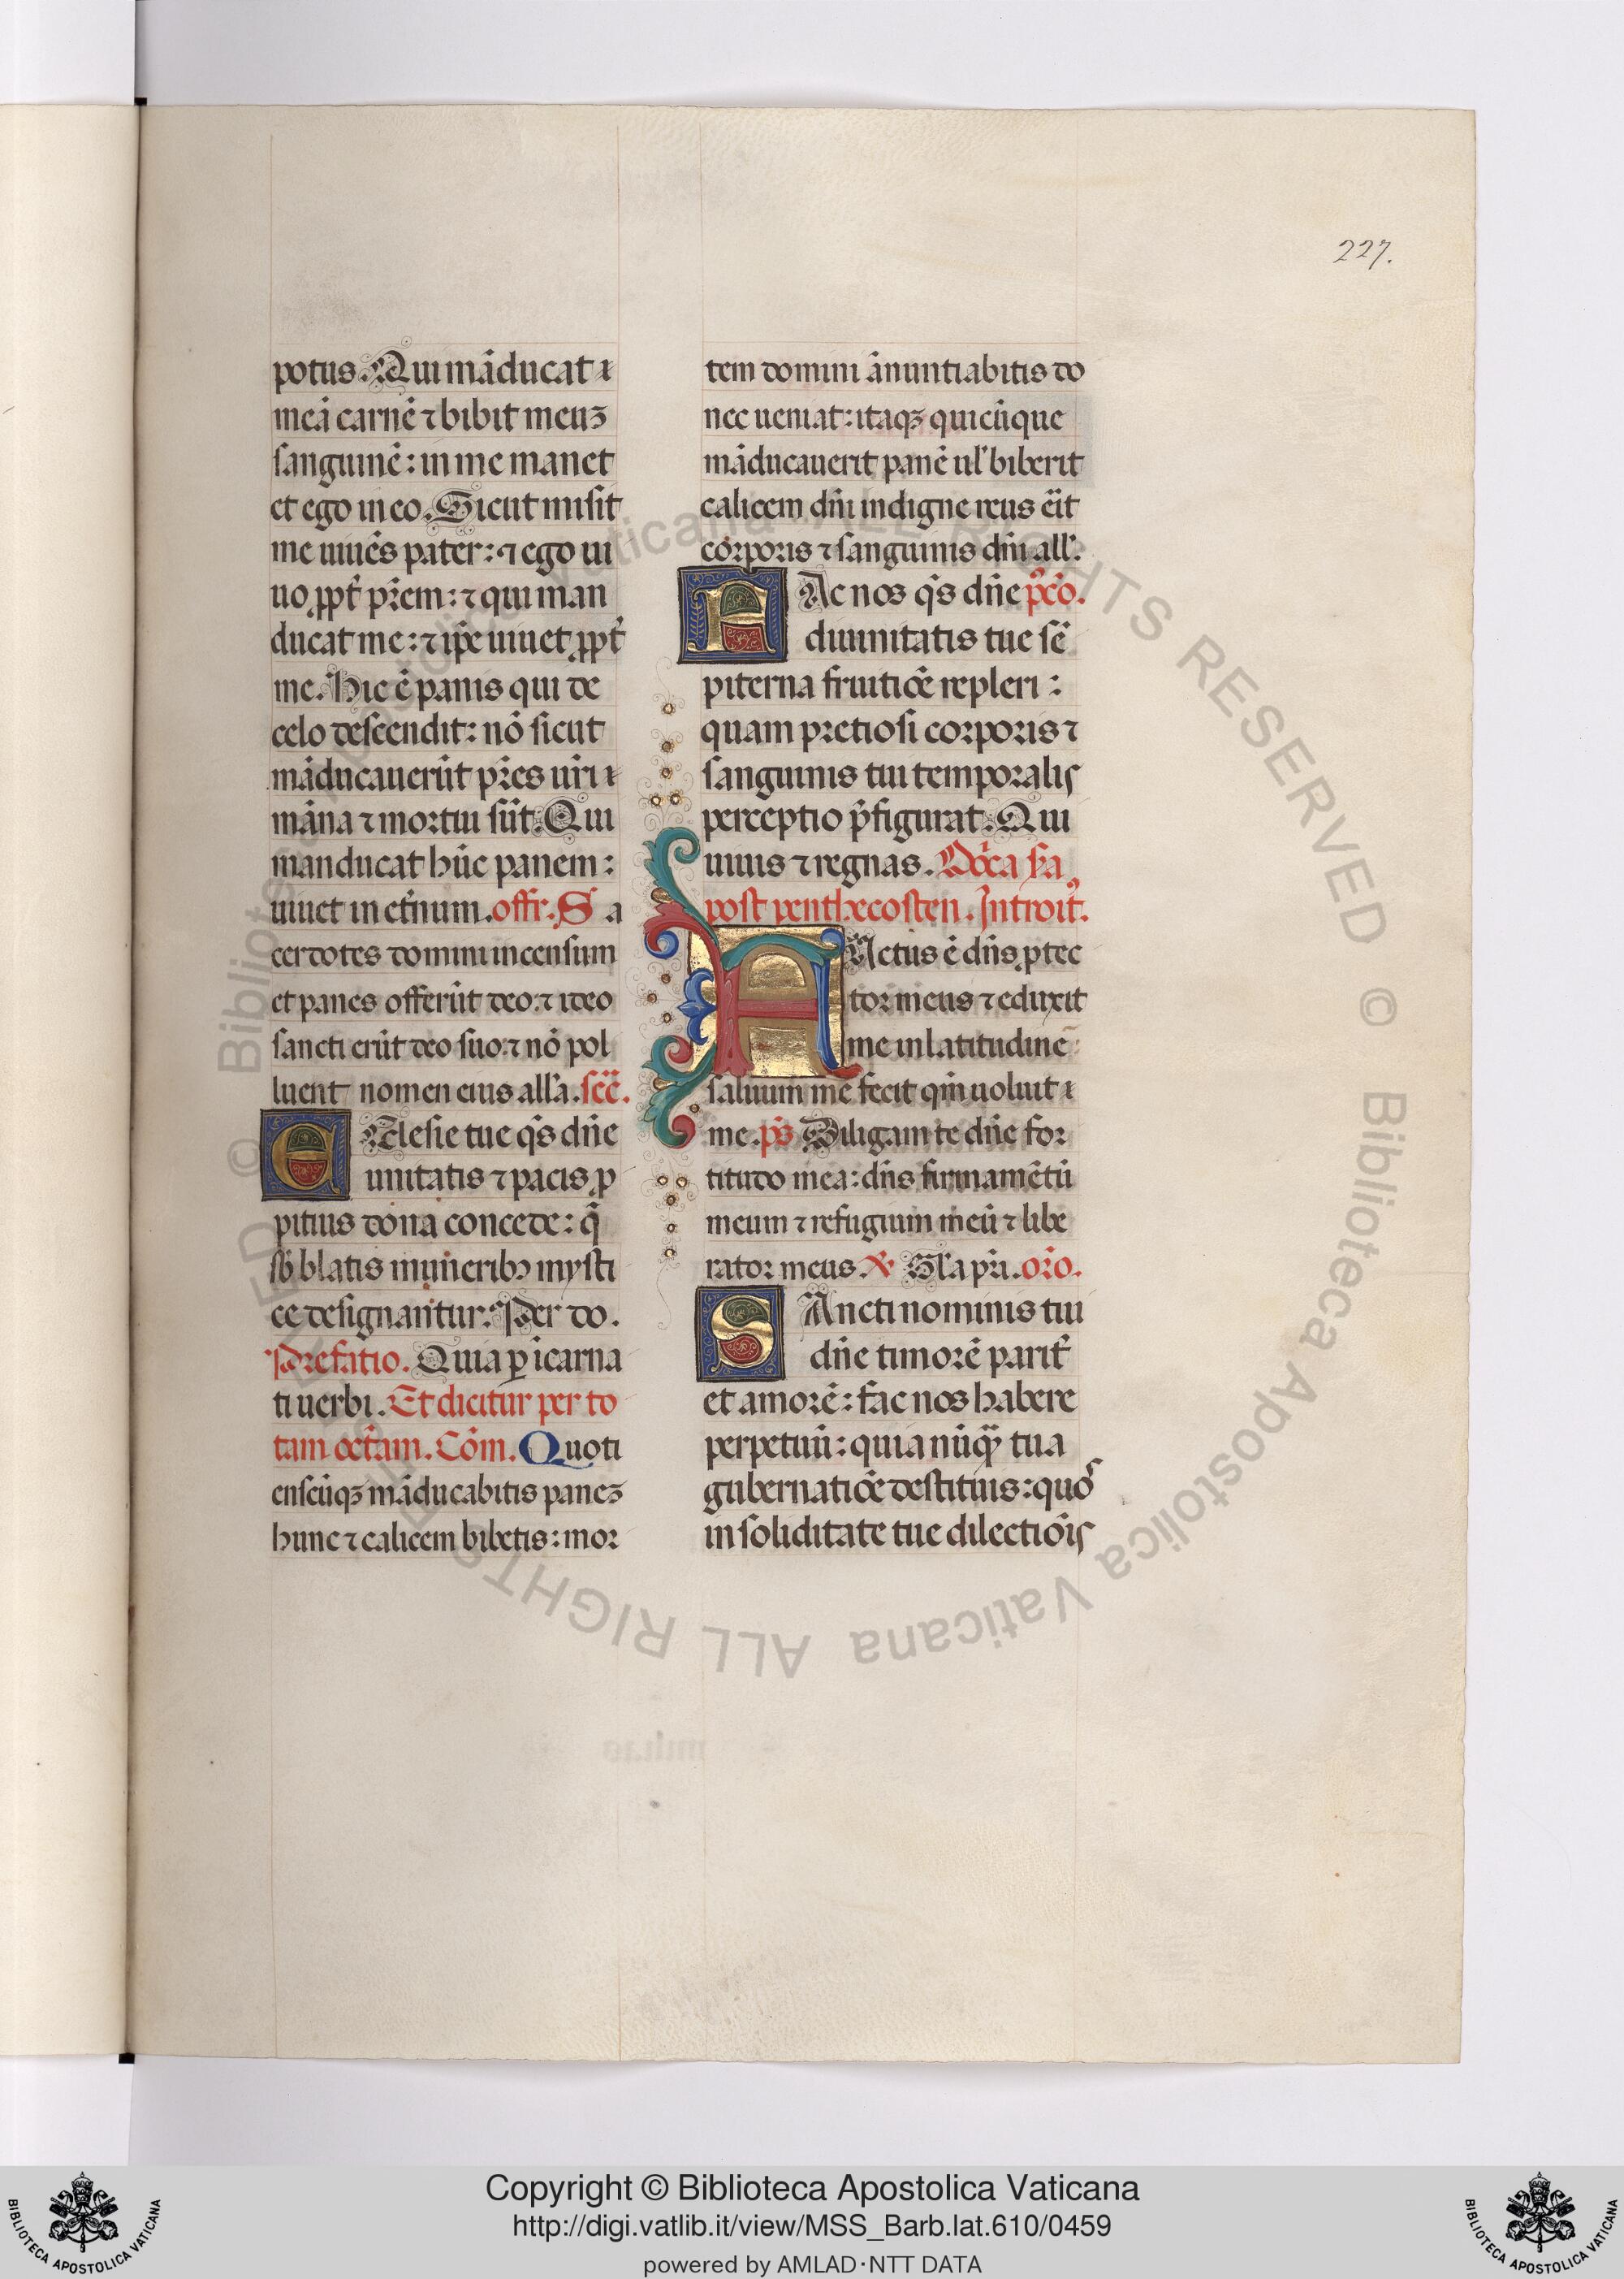 227.
potus. Qui māducat ⁊
meā carnē ⁊ bibit meuꝫ
sanguinē: in me manet
et ego in eo. Sicut misit
me uiuēs pater: ⁊ ego ui
uo ꝓpt̄ pr̄em: ⁊ qui man
ducat me: ⁊ ip̄e uiuet ꝓpt̄
me. Hic ē panis qui de
celo descendit: nō sicut
māducauerūt pr̄es ur̄i ⁊
māna ⁊ mortui sūt. Qui
manducat hūc panem:
uiuet in et̄num. offr. Sa
cerdotes domini incensum
et panes offerūt deo: ⁊ ideo
sancti erūt deo suo: ⁊ nō pol
luent nomen eius all'a. sec̄.
Eclesie tue qs̄ dn̄e
unitatis ⁊ pacis ꝓ
pitius dona concede: q̄
sb̄ blatis munerib; mysti
ce designantur. Per do.
Prefatio. Quia ꝑ īcarna
ti uerbi. Et dicitur per to
tam oct̄am. Cōm. Quoti
enscūqꝫ māducabitis paneꝫ
hunc ⁊ calicem bibetis: mor
tem domini ānuntiabitis do
nec ueniat: itaqꝫ quicūque
māducauerit panē ul' biberit
calicem dn̄i indigne reus er̄it
corporis ⁊ sanguinis dn̄i all'.
FAc nos qs̄ dn̄e pꝰcō.
diuinitatis tue sē
piterna fruitiōe repleri:
quam pretiosi corporis ⁊
sanguinis tui temporalis
perceptio p̄figurat. Qui
uiuis ⁊ regnas. Dōca ẜa
post penthecosten. Introit̄.
FActus ē dn̄s ꝓtec
tor meus ⁊ eduxit
me in latitudinē:
saluum me fecit qm̄ uoluit ⁊
me. ps̄ Diligam te dn̄e for
titudo mea: dn̄s firmamētū
meum ⁊ refugium meū ⁊ libe
rator meus. ℣ Gl'a pr̄i. or̄o.
SAncti nominis tui
dn̄e timorē parit̄
et amorē: fac nos habere
perpetuū: quia nūqꝫ tua
gubernatiōe destituis: quos
in soliditate tue dilectiōis
Copyright © Biblioteca Apostolica Vaticana
http://digi.vatlib.it/view/MSS_Barb.lat.610/0459
powered by AMLAD·NTT DATA
BIBLIOTECA APOSTOLICA VATICANA
BIBLIOTECA APOSTOLICA VATICANA
© Biblioteca Apostolica Vaticana ALL RIGHTS RESERVED © Biblioteca Apostolica Vaticana ALL RIGHTS RESERVED